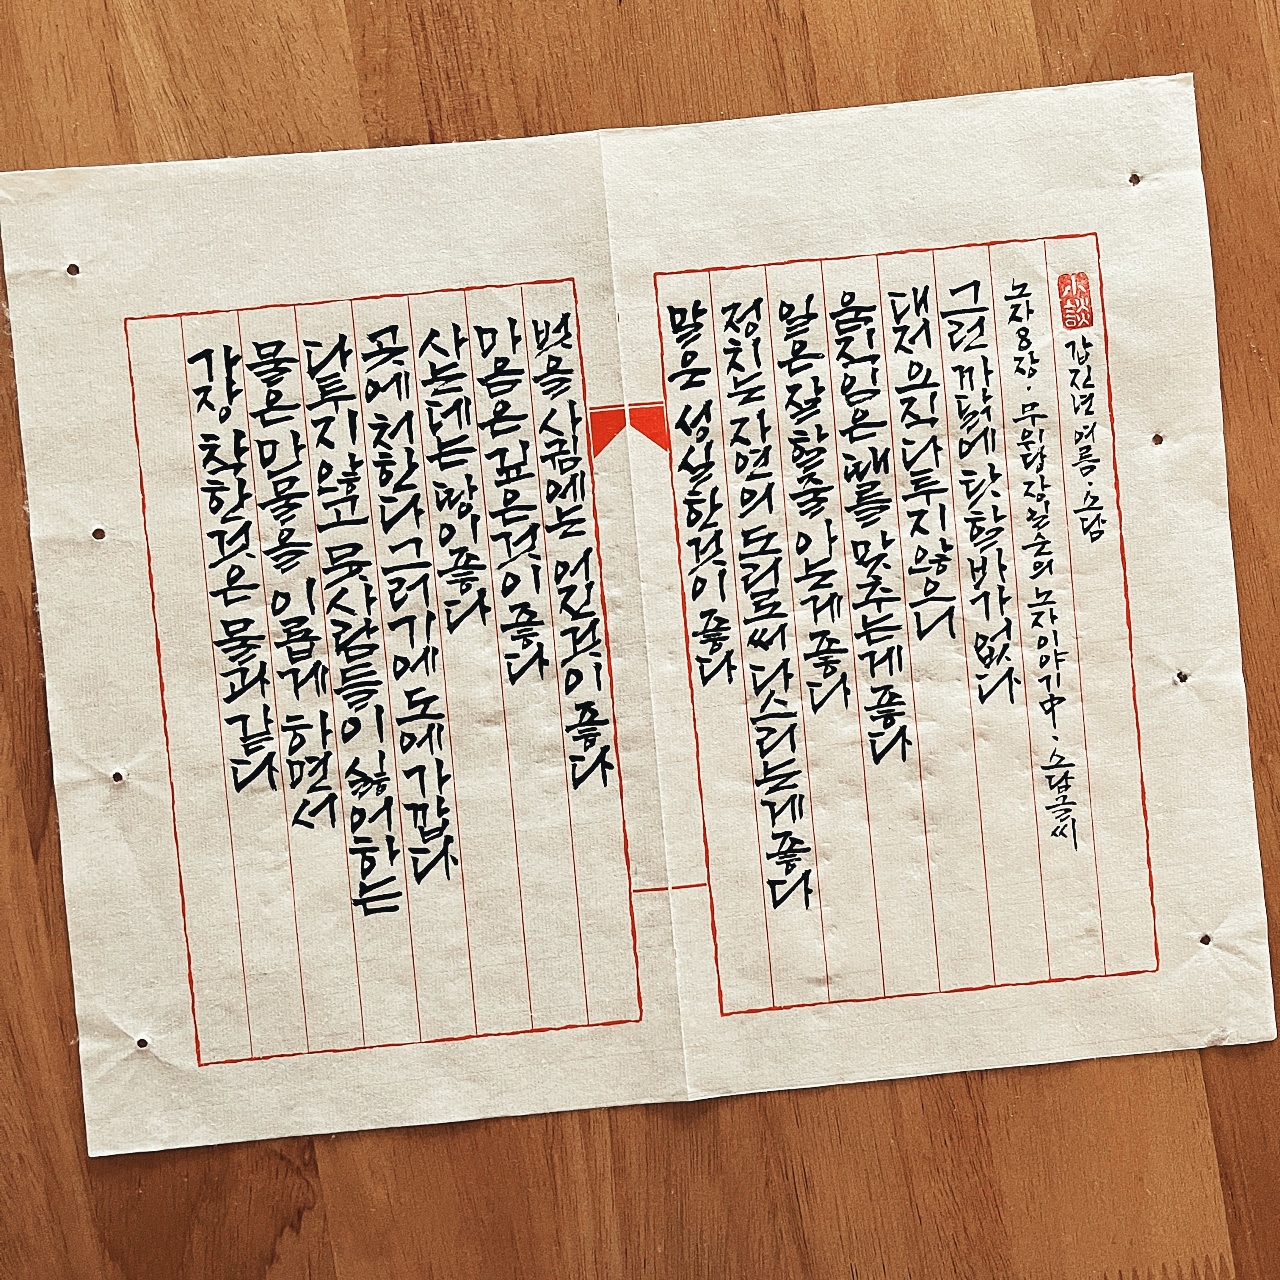 가장 착한것은 물과 같다
물은 만물을 이롭게 하면서
다투지 않고 뭇사람들이 싫어하는
곳에 처한다 그러기에 도에 가깝다
사는데는 땅이 좋다
마음은 깊은것이 좋다
벗을 사귐에는 어진것이 좋다
말은 성실한것이 좋다
정치는 자연의 도리로써 다스리는게 좋다
일은 잘 할줄 아는게 좋다
움직임은 때를 맞추는게 좋다
대저 오직 다투지 않으니
그런 까닭에 탓할바가 없다
노자8장. 무위당 장일순의 노자이야기中. 소담글씨
小談 갑진년 여름. 소담